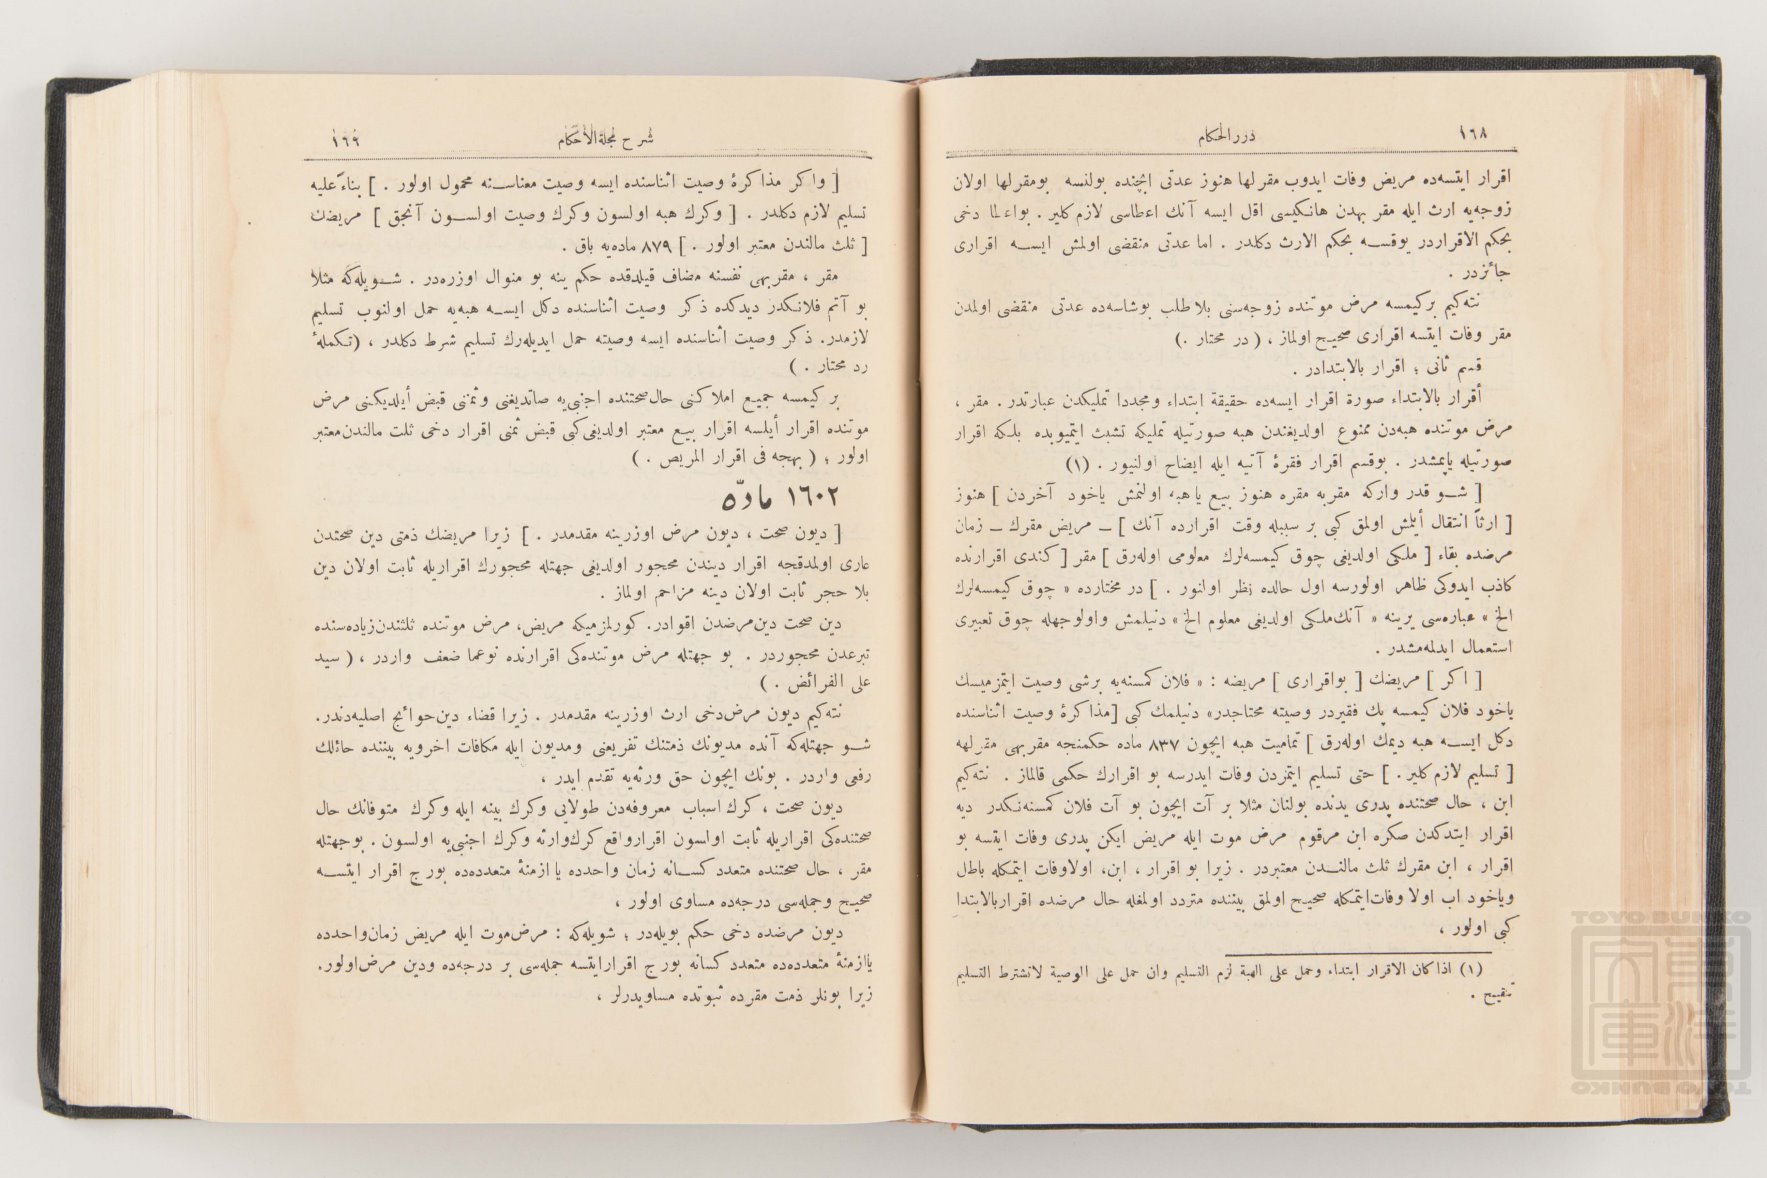 ١٦٨
دررالحكام
اقرار ايتسه‌ده مريض وفات ايدوب مقرلها هنوز عدتى ايچنده بولنسه بومقرلها اولان
زوجه‌يه ارث ايله مقر بهدن هانكيسى اقل ايسه آنك اعطاسى لازم كلير . بواعطا دخى
بحكم الاقراردر يوقسه بحكم الارث دكلدر . اما عدتى منقضى اولمش ايسه اقرارى
جائزدر .
نته‌كيم بركيمسه مرض موتنده زوجه‌سنى بلا طلب بوشاسه‌ده عدتى منقضى اولمدن
مقر وفات ايتسه اقرارى صحيح اولماز ، ( در مختار .)
قسم ثانى ؛ اقرار بالابتدادر .
أقرار بالابتداء صورة اقرار ايسه‌ده حقيقة ابتداء ومجددا تمليكدن عبارتدر . مقر ،
مرض موتنده هبه‌دن ممنوع اولديغندن هبه صورتيله تمليكه تشبث ايتميوبده بلكه اقرار
صورتيله ياپمشدر . بوقسم اقرار فقرۀ آتيه ايله ايضاح اولنيور . (١)
[ شو قدر واركه مقربه مقره هنوز بيع ياهبه اولنمش ياخود آخردن ] هنوز
[ ارثاً انتقال أيتمش اولمق كبى بر سببله وقت اقرارده آنك ] ـ مريض مقرك ـ زمان
مرضده بقاء [ ملكى اولديغى چوق كيمسه‌لرك معلومى اوله‌رق ] مقر [ كندى اقرارنده
كاذب ايدوكى ظاهر اولورسه اول حالده نظر اولنور . ] در مختارده « چوق كيمسه‌لرك
الخ » عباره‌سى يرينه « آنك‌ملكى اولديغى معلوم الخ » دنيلمش واولوجهله چوق تعبيرى
استعمال ايدلمه‌مشدر .
[ اكر ] مريضك [ بواقرارى ] مريضه : « فلان كمسنه‌يه برشى وصيت ايتمزميسك
ياخود فلان كيمسه پك فقيردر وصيته محتاجدر» دنيلمك كبى [مذاكرۀ وصيت اثناسنده
دكل ايسه هبه ديمك اوله‌رق ] تماميت هبه ايچون ٨٣٧ ماده حكمنجه مقربهى مقرلهه
[ تسليم لازم كلير . ] حتى تسليم ايتمزدن وفات ايدرسه بو اقرارك حكمى قالماز . نته‌كيم
ابن ، حال صحتنده پدرى يدنده بولنان مثلا بر آت ايچون بو آت فلان كمسنه‌نكدر ديه
اقرار ايتدكدن صكره ابن مرقوم مرض موت ايله مريض ايكن پدرى وفات ايتسه بو
اقرار ، ابن مقرك ثلث مالندن معتبردر . زيرا بو اقرار ، ابن، اولاوفات ايتمكله باطل
وياخود اب اولا وفات‌ايتمكله صحيح اولمق بيننده متردد اولمغله حال مرضده اقراربالابتدا
كبى اولور ،
(١) اذاكان الاقرار ابتداء وحمل على الهبة لزم التسليم وان حمل على الوصية لانشترط التسليم
تنقيح .
شرح مجلةالأحكام
١٦٩
[ واكر مذاكرۀ وصيت اثناسنده ايسه وصيت معناسنه محمول اولور . ] بناءً عليه
تسليم لازم دكلدر . [ وكرك هبه اولسون وكرك وصيت اولسون آنجق ] مريضك
[ ثلث مالندن معتبر اولور . ] ٨٧٩ ماده‌يه باق .
مقر ، مقربهى نفسنه مضاف قيلدقده حكم ينه بو منوال اوزره‌در . شويله‌كه مثلا
بو آتم فلانكدر ديدكده ذكر وصيت اثناسنده دكل ايسه هبه‌يه حمل اولنوب تسليم
لازمدر. ذكر وصيت اثناسنده ايسه وصيته حمل ايديله‌رك تسليم شرط دكلدر ، (تكملۀ
رد محتار . )
بر كيمسه جميع املاكنى حال‌صحتنده اجنبى‌يه صاتديغنى وثمننى قبض أيلديكنى مرض
موتنده اقرار أيلسه اقرار بيع معتبر اولديغى‌كبى قبض ثمنى اقرار دخى ثلث مالندن‌معتبر
اولور ؛ ( بهجه فى اقرار المريض . )
١٦٠٢ مادّه
[ ديون صحت ، ديون مرض اوزرينه مقدمدر . ] زيرا مريضك ذمتى دين صحتدن
عارى اولمدقجه اقرار ديندن محجور اولديغى جهتله محجورك اقراريله ثابت اولان دين
بلا حجر ثابت اولان دينه مزاحم اولماز .
دين صحت دين‌مرضدن اقوادر. كورلمزميكه مريض، مرض موتنده ثلثندن‌زياده‌سنده
تبرعدن محجوردر . بو جهتله مرض موتنده‌كى اقرارنده نوعما ضعف واردر ، ( سيد
على الفرائض . )
نته‌كيم ديون مرض‌دخى ارث اوزرينه مقدمدر . زيرا قضاء دين‌حوائج اصليه‌دندر.
شو جهتله‌كه آنده مديونك ذمتنك تفريغى ومديون ايله مكافات اخرويه بيننده حائلك
رفعى واردر . بونك ايچون حق ورثه‌يه تقدم ايدر ،
ديون صحت ، كرك اسباب معروفه‌دن طولايى وكرك بينه ايله وكرك متوفانك حال
صحتنده‌كى اقراريله ثابت اولسون اقرارواقع كرك‌وارثه وكرك اجنبى‌يه اولسون . بوجهتله
مقر ، حال صحتنده متعدد كسانه زمان واحدده يا ازمنۀ متعدده‌ده بورج اقرار ايتسه
صحيح وجمله‌سى درجه‌ده مساوى اولور ،
ديون مرضده دخى حكم بويله‌در ؛ شويله‌كه : مرض‌موت ايله مريض زمان‌واحدده
ياازمنۀ متعدده‌ده متعدد كسانه بورج اقرارايتسه جمله‌سى بر درجه‌ده ودين مرض‌اولور.
زيرا بونلر ذمت مقرده ثبوتده مساويدرلر ،
TOYO BUNKO
TOYO BUNKO